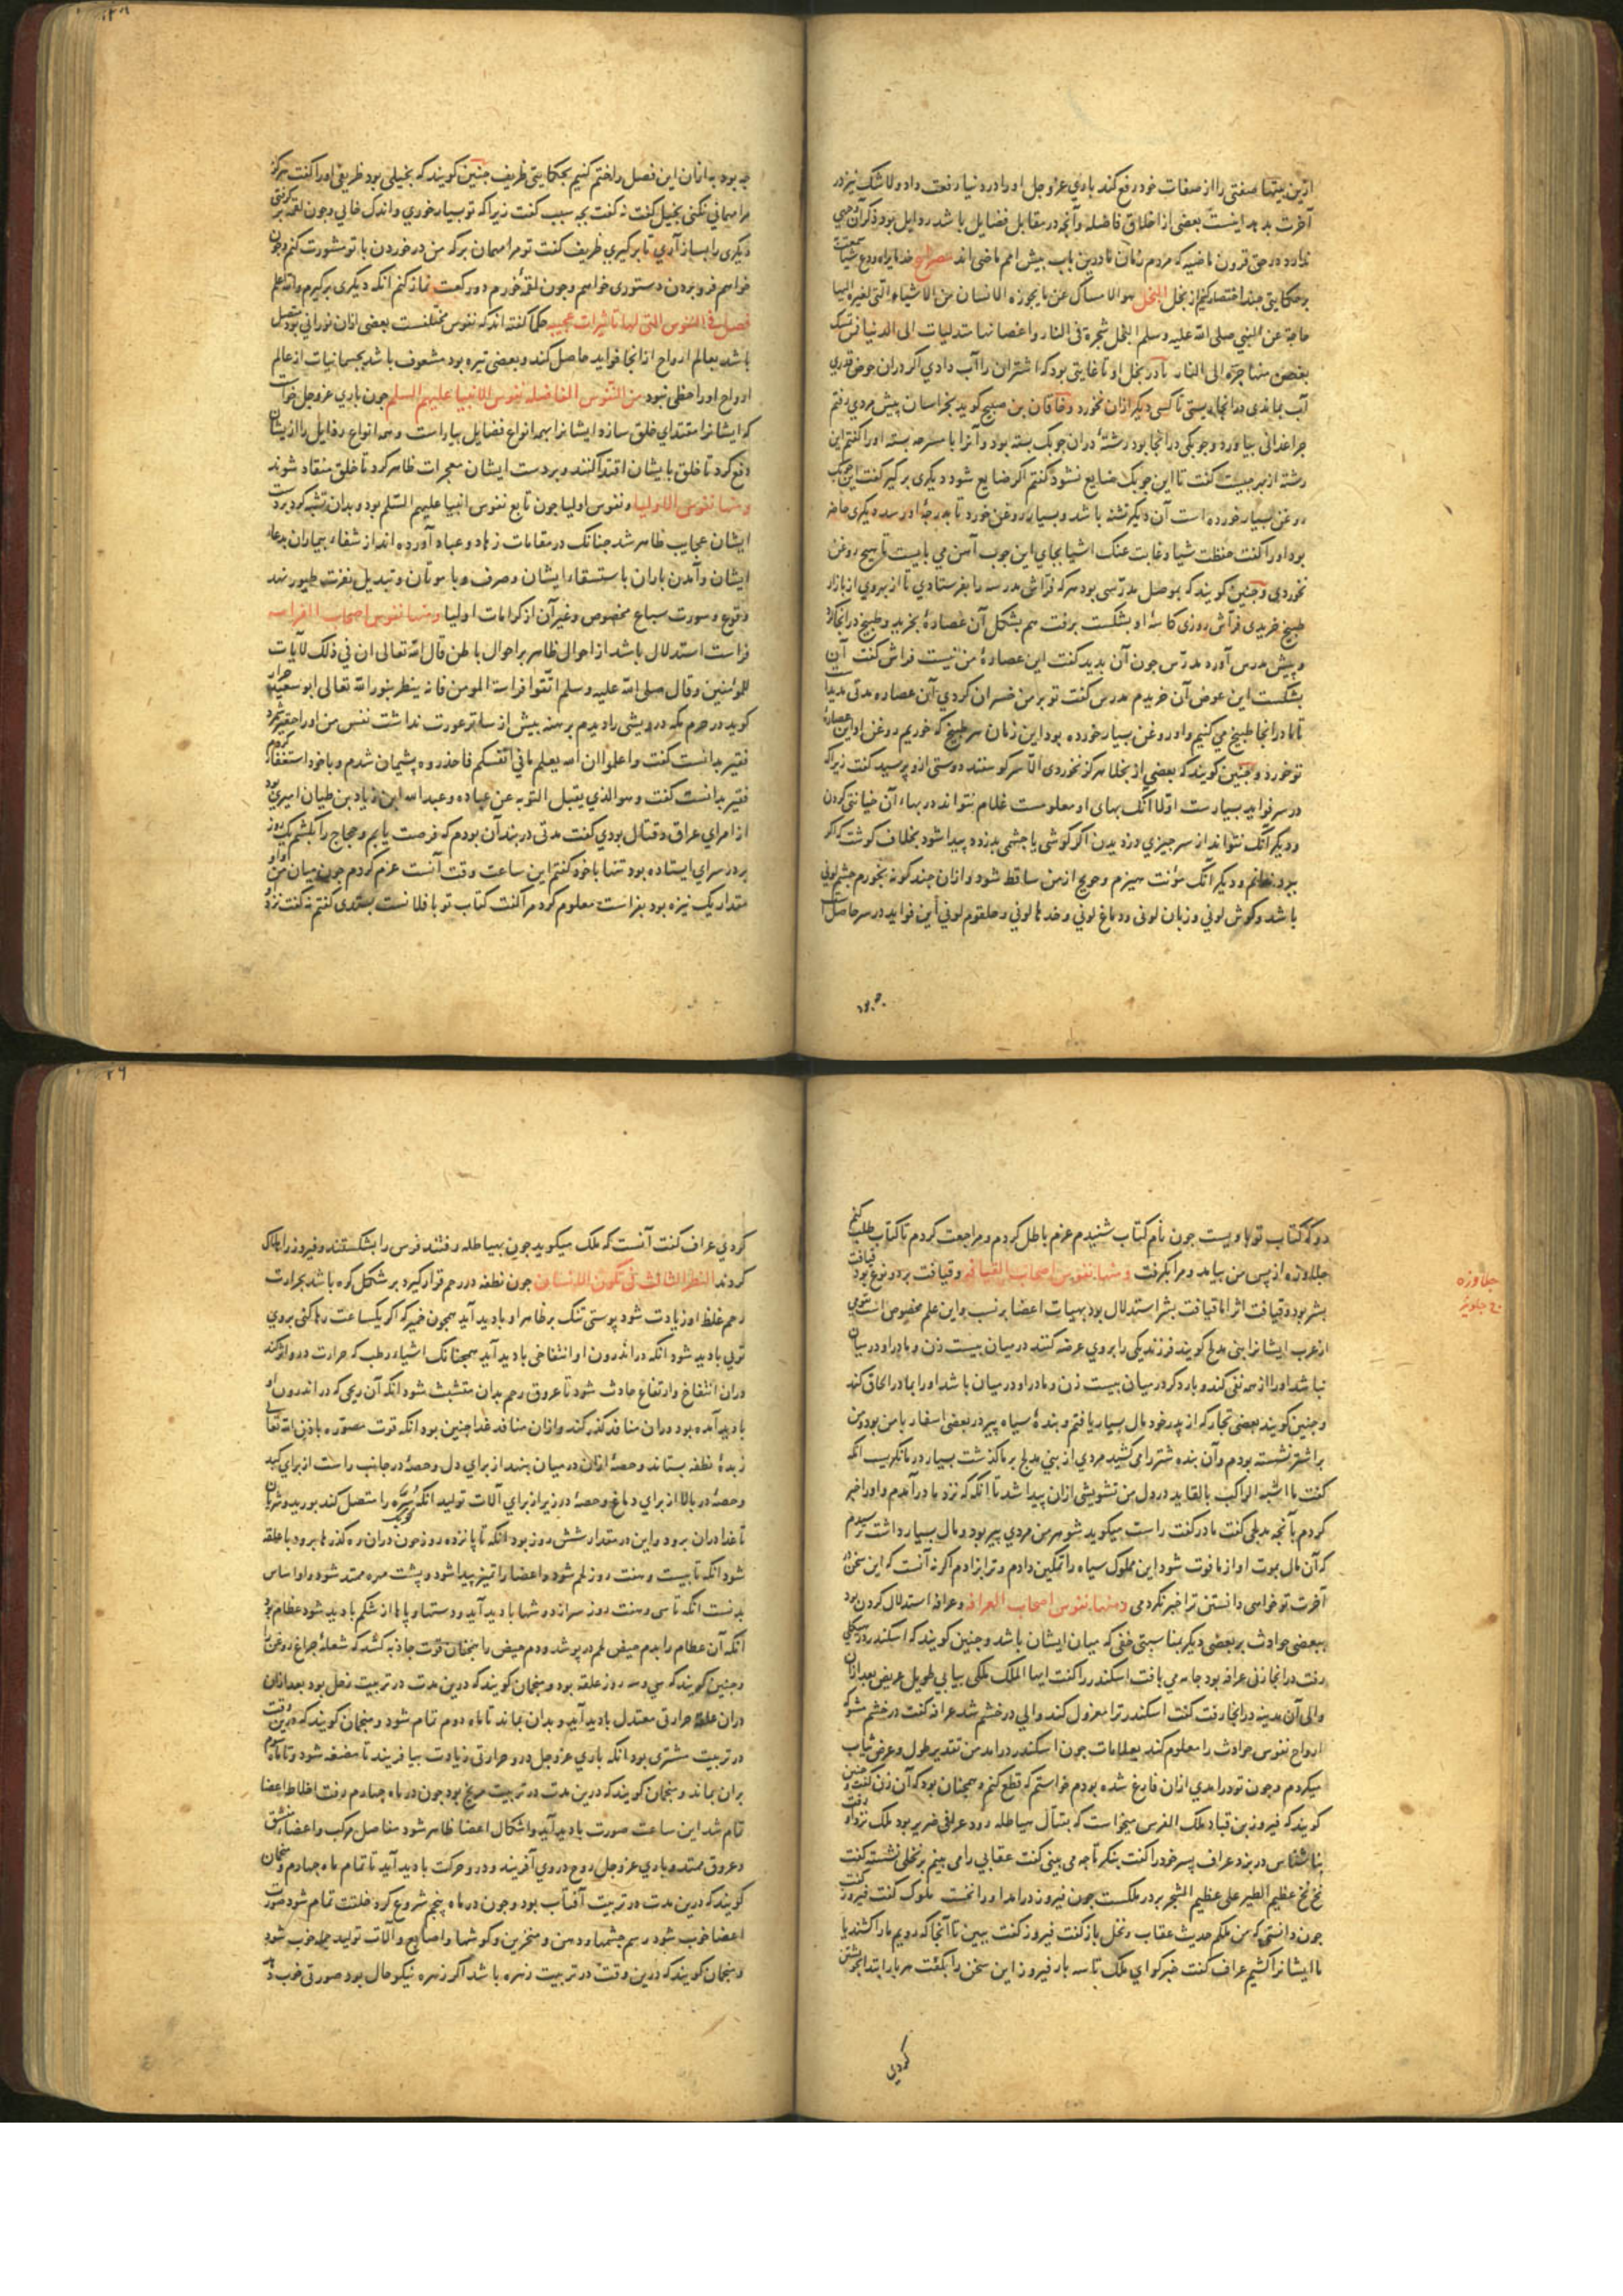 ازین بیتها صفتی را از صفات خود رفع کند باری عز و جل او را در دنیا رفعت داد و لا شک نیز در
آخرت بدهد اینست بعضی از اخلاق فاضله و آنچه در مقابل فضایل باشد رذایل بود
در حق قرون ماضیه که مردم زمان ما درین باب بیش امم ماضی اند
بر حکایتی چند اختصار کنیم از بخل البخل هو الامساک عن ما یجوزه الانسان من الاشیاء التی لغیره الیها
حاجة عن النبی صلی الله علیه وسلم البخل شجرة فی النار و اغصانها متدلیات الی الدنیا فمن تمسک
بغصن منها جرّه الی النار مادر بخل او تا غایتی بود که اشتران را آب دادی اگر در آن حوض قدری
آب بماندی در آنجا تا کسی دیگر از آن نخورد و خاقان بن صبیح کوید بخراسان پیش مردی رفتم
چراغدانی بیاورد و چوبکی در آنجا بود رشتهٔ در آن چوبک بسته بود و آنرا با مسرجه بسته او را کفتم این
رشته از بهر چیست کفت تا این چوبک ضایع نشود کفتم اکر ضایع شود دیکری بر کیر کفت این چوبک
روغن بسیار خورده است آن دیکر تشنه باشد و بسیار روغن خورد تا بدرجهٔ او رسد دیکری حاضر
بود او را کفت حفظت شیا و غابت عنک اشیا بجای این چوب آهن می بایست تا هیچ روغن
نخوردی و چنین کویند که بموصل مدرسی بود هر که فراش مدرسه را بفرستادی تا از بهر وی از بازار
طبیخ خریدی فراش روزی کاسهٔ او بشکست برفت هم بشکل آن غضارهٔ بخرید و طبیخ در آنجا کرد
و پیش مدرس آورد مدرّس چون آن بدید کفت این غضارهٔ من نیست فراش کفت آن
بشکست این عوض آن خریدم مدرس کفت تو بر من خسران کردی آن غضاره مدتی مدید
تا ما در آنجا طبیخ می کنیم و او روغن بسیار خورده بود این زمان هر طبیخ که خوریم روغن او این غضارهٔ
نو خورد و چنین کویند که بعضی از بخلا هرکز نخوردی الا سر کوسفند دوستی از و پرسید کفت زیرا که
در سر فواید بسیارست اولا آنک بهای او معلومست غلام نتواند در بهاء آن خیانتی کردن
و دیکر آنک نتواند از سر چیزی دزدیدن اکر کوشی یا چشمی بدزدد پیدا شود بخلاف کوشت که اکر
ببرد ندانم و دیکر آنک مؤنت هیزم و حویج از من ساقط شود و از آن چند کونه بخورم چشم لونی
باشد و کوش لونی و زبان لونی و دماغ لونی و خدها لونی و حلقوم لونی این فواید در سر حاصل
به بود
چه بود به از آن این فصل را ختم کنیم بحکایتی ظریف چنین کویند که بخیلی بود ظریفی او را کفت هرکز
مرا مهمانی نکنی بخیل کفت نه کفت بچه سبب کفت زیرا که تو بسیار خوری و اندک خایی و چون لقمهٔ بر کرفتی
دیکری را بساز آری تا برکیری ظریف کفت تو مرا مهمان بر که من در خوردن با تو مشورت کنم و چون
خواهم فرو بردن دستوری خواهم و چون لقمهٔ خورم دو رکعت نماز کنم آنکه دیکری برکیرم والله اعلم
فصل فی النفوس التی لها تاثیرات عجیبه حکما کفته اند که نفوس مختلفست بعضی از آن نورانی بود متصل
باشد بعالم ارواح از آنجا فواید حاصل کند و بعضی تیره بود مشعوف باشد بجسمانیات از عالم
ارواح او را حظی نبود من النفوس الفاضله نفوس الانبیا علیهم السلم چون باری عز و جل خواست
که ایشانرا مقتدای خلق سازد ایشانرا بهمه انواع فضایل بیاراست و همه انواع رذایل را از ایشان
دفع کرد تا خلق بایشان اقتدا کنند و بر دست ایشان معجزات ظاهر کرد تا خلق منقاد شوند
و منها نفوس الاولیا و نفوس اولیا چون تابع نفوس انبیا علیهم السّلم بود و بدان تشبه کرد بر دست
ایشان عجایب ظاهر شد چنانک در مقامات زهاد و عباد آورده اند از شفاء بیماران بدعاء
ایشان و آمدن باران باستسقاء ایشان و صرف وبا و موتان و تبدیل نفرت طیور بهدو
وقوع و سورت سباع بخصوص و غیر آن از کرامات اولیا و منها نفوس اصحاب الفراسه
فراست استدلال باشد از احوال ظاهر بر احوال باطن قال الله تعالی ان فی ذلک لآیات
للمؤمنین و قال صلی الله علیه وسلم اتقوا فراسة المومن فانه ینظر بنور الله تعالی ابو سعید خراز
کوید در حرم مکه درویشی را دیدم برهنه بیش از ساتر عورت نداشت نفس من او را حقیر شمرد
فقیر بدانست کفت و اعلموا ان الله یعلم ما فی انفسکم فاحذروه پشیمان شدم و با خود استغفار کردم
فقیر بدانست کفت و هو الذی یقبل التوبه عن عباده و عبد الله ابن زیاد بن ظبیان امیری بود
از امرای عراق و قتال بودی کفت مدتی در بند آن بودم که فرصت یابم و حجاج را بکشم یک روز
بر در سرای ایستاده بود تنها با خود کفتم این ساعت وقت آنست عزم کردم چون میان من و او
مقدار یک نیزه بود بفراست معلوم کرد مرا کفت کتاب تو با فلانست بستدی کفتم نه کفت نزد
رو که کتاب تو با ویست چون نام کتاب شنیدم عزم باطل کردم و مراجعت کردم تا کتاب طلب کنم
جلاوزه از پس من بیامد و مرا بکرفت و منها نفوس اصحاب القیافه و قیافت بر دو نوع بود قیافت
بشر بود و قیافت اثر اما قیافت بشر استدلال بود بهیات اعضا بر نسب و این علم مخصوص است بقومی
از عرب ایشانرا بنی مدلج کویند فرزند یکی را بر وی عرضه کنند در میان بیست زن و مادر او در میان
نباشد او را از همه نفی کند و بار دکر در میان بیست زن و مادر او در میان باشد او را بمادر الحاق کند
و چنین کویند بعضی تجار که از پدر خود مال بسیار یافتم و بندهٔ سیاه پیر در بعضی اسفار با من بود من
بر اشتر نشسته بودم و آن بنده شتر را می کشید مردی از بنی مدلج بر ما کذشت بسیار در ما نکریست آنکه
کفت ما اشبه الراکب بالقاید در دل من تشویشی از آن پیدا شد تا آنکه که نزد مادر آمدم و او را خبر
کردم بآنچه مدلجی کفت مادر کفت راست میکوید شوهر من مردی پیر بود و مال بسیار داشت ترسیدم
که آن مال بموت او از ما فوت شود این مملوک سیاه را تمکین دادم و ترا بزادم اکر نه آنست که این سخن در
آخرت تو خواهی دانستن ترا خبر نکردمی و منها نفوس اصحاب العرافه و عرافه استدلال کردن بود
ببعضی حوادث بر بعضی دیکر بمناسبتی خفی که میان ایشان باشد و چنین کویند که اسکندر در هیکلی
رفت در آنجا زنی عرافه بود جامه می بافت اسکندر را کفت ایها الملک ملکی بیابی طویل عریض بعد از آن
والی آن مدینه در آنجا رفت کفت اسکندر ترا معزول کند والی در خشم شد عرافه کفت در خشم مشو که
ارواح نفوس حوادث را معلوم کند بعلامات چون اسکندر در آمد من تقدیر طول و عرض ثیاب
میکردم و چون تو در آمدی از آن فارغ شده بودم خواستم که قطع کنم و همچنان بود که آن زن کفت و چنین
کویند که فیروز بن قباد ملک الفرس میخواست که بقتال هیاطله رود عرافی ضریر بود ملک نزد او رفت
بناشناس در بزد عراف پسر خود را کفت بنکر تا چه می بینی کفت عقابی را می بینم بر نخلی نشسته کفت
بخ بخ عظیم الطیر علی عظیم الشجر بر در ملکست چون فیروز در آمد او را تحیت ملوک کفت فیروز کفت
چون دانستی که من ملکم حدیث عقاب و نخل باز کفت فیروز کفت ببین تا آنجا که رویم ما را کشند یا
ما ایشانرا کشیم عراف کفت خبر کو ای ملک تا سه بار فیروز این سخن را بکفت هر بار ابتدا بخویشتن
کردی
جلاوزه
ج جلویز
کردی عراف کفت آنست که ملک میکوید چون بهیاطله رفتند فرس را بشکستند و فیروز را هلاک
کردند النظر الثالث فی تکون الانسان چون نطفه در رحم قرار کیرد بر شکل کره باشد بحرارت
رحم غلظ او زیادت شود پوستی تنک بر ظاهر او بادید آید همچون خمیر که اکر یکساعت رها کنی بر وی
توئی بادید شود آنکه در اندرون او انتفاخی بادید آید همچنانک اشیاء رطب که حرارت در و اثر کند
در آن انتفاخ و ارتفاع حادث شود تا عروق رحم بدان متشبث شود آنکه آن ریحی که در اندرون او
بادید آمده بود در آن منافذ کذر کند و از آن منافذ غدا چنین بود آنکه قوت مصوّره باذن الله تعالی
زبدهٔ نطفه بستاند و حصهٔ از آن در میان بنهد از برای دل و حصهٔ در جانب راست از برای کبد
و حصهٔ در بالا از برای دماغ و حصهٔ در زیر از برای آلات تولید آنکه سُرّه را متصل کند بورید و شریان
تا غدا در آن برود و این در مقدار شش روز بود آنکه تا پانزده روز خون در آن ره کذرها برود با علقه
شود آنکه تا بیست و هفت روز لحم شود و اعضا را تمیز پیدا شود و پشت مهره ممتد شود و او اساس
بدنست آنکه تا سی و هفت روز سر از دوشها بادید آید و دستها و پایها از شکم بادید شود عظام بود
آنکه آن عظام را بدم حیض لحم در پوشد و دم حیض را همچنان قوت جاذبه کشد که شعلهٔ چراغ روغن را
و چنین کویند که سی و سه روز علقه بود و منجمان کویند که درین مدت در تربیت زحل بود بعد از آن
در آن علقه حرارتی معتدل بادید آید و بدان بماند تا ماه دوم تمام شود و منجمان کویند که درین وقت
در تربیت مشتری بود آنکه باری عز و جل در و حرارتی زیادت بیافریند تا مضغه شود و تا ماه سوم
بر آن بماند و منجمان کویند که درین مدت در تربیت مریخ بود چون در ماه چهارم رفت اخلاط اعضا
تمام شد این ساعت صورت بادید آید و اشکال اعضا ظاهر شود مفاصل مرکب و اعضاء
و عروق ممتد و باری عز و جل روح در وی آفریند و در و حرکت بادید آید تا تمام ماه چهارم و منجمان
کویند که درین مدت در تربیت آفتاب بود و چون در ماه پنجم شروع کرد خلقت تمام شود صورت
اعضا خوب شود رسم چشمها و دهن و منخرین و کوشها و اصابع و آلات تولید جمله خوب شود
و منجمان کویند که درین وقت در تربیت زهره باشد اکر زهره نیکو حال بود صورتی خوب